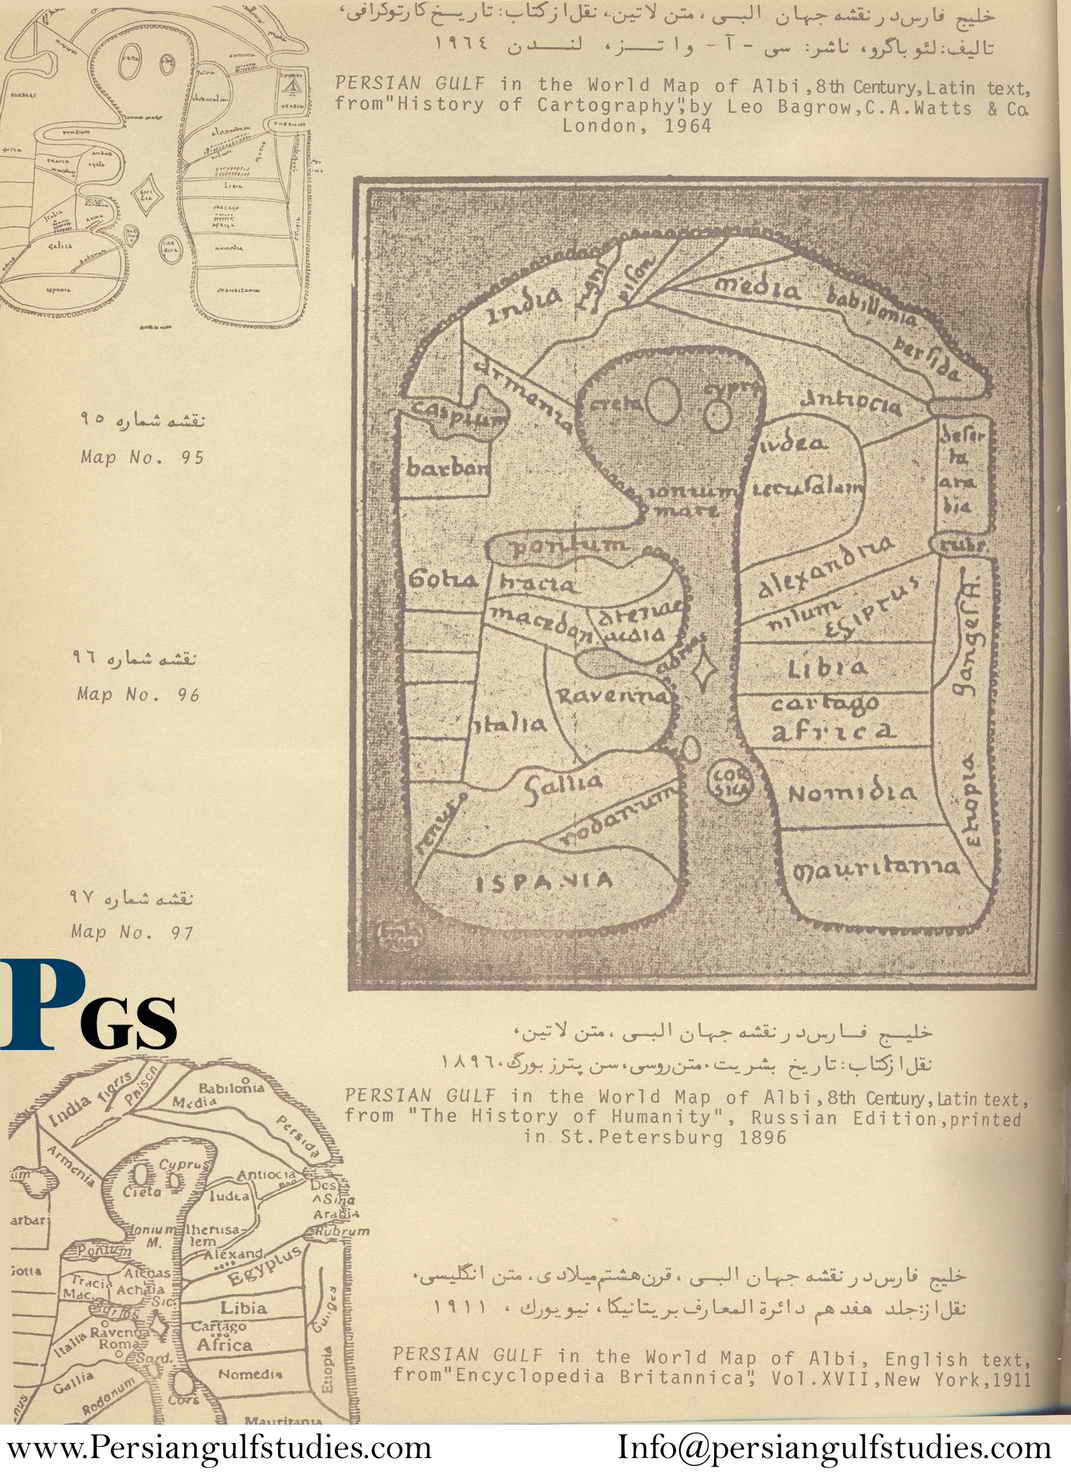 خلیج فارس در نقشه جهان البی، متن لاتین، نقل از کتاب: تاریخ کارتوگرافی،
تالیف: لئو باگرو، ناشر: سی - آ - واتز، لندن ۱۹۶٤
PERSIAN GULF in the World Map of Albi,8th Century,Latin text,
from"History of Cartography",by Leo Bagrow,C.A.Watts & Co.
London, 1964
نقشه شماره ۹۵
Map No. 95
نقشه شماره ۹۶
Map No. 96
نقشه شماره ۹۷
Map No. 97
PGS
India
tigris
pison
media
babillonia
persida
armenia
caspium
creta
cypro
antiocia
barbari
iudea
deser
ta
ara
bia
ionium
mare
ierusalem
pontum
rubr.
Gotia
tracia
alexandria
macedoni
atenae
nilum
egiptus
Libia
Ravenna
italia
cartago
africa
gallia
COR
SICA
Nomidia
renus
rodanum
etiopia
ISPANIA
mauritania
خلیج فارس در نقشه جهان البی، متن لاتین،
نقل از کتاب: تاریخ بشریت، متن روسی، سن پترزبورگ، ۱۸۹۶
PERSIAN GULF in the World Map of Albi,8th Century,Latin text,
from "The History of Humanity", Russian Edition,printed
in St.Petersburg 1896
India
Tigris
Phison
Babilonia
Media
Persida
Armenia
Cyprus
Creta
Antiocia
Iudea
Des
Sina
Arabia
Ionium
M.
Iherusa-
lem
Rubrum
Pontum
Alexand.
Egyptus
Gotia
Tracia
Atenas
Mac.
Achaia
Sic.
Libia
Italia
Ravenna
Roma
Cartago
Africa
Sard.
Gallia
Rodanum
Cors
Nomedia
Etiopia
Mauritania
خلیج فارس در نقشه جهان البی، قرن هشتم میلادی، متن انگلیسی،
نقل از: جلد هفدهم دائرة المعارف بریتانیکا، نیویورک، ۱۹۱۱
PERSIAN GULF in the World Map of Albi, English text,
from"Encyclopedia Britannica", Vol.XVII,New York,1911
www.Persiangulfstudies.com
Info@persiangulfstudies.com